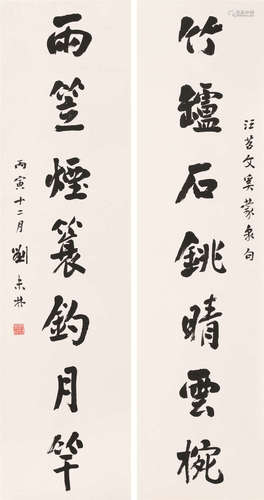 汪苕文奚蒙泉句
竹罏石銚晴雲椀
雨笠煙簑釣月竿
丙寅十二月 劉未林